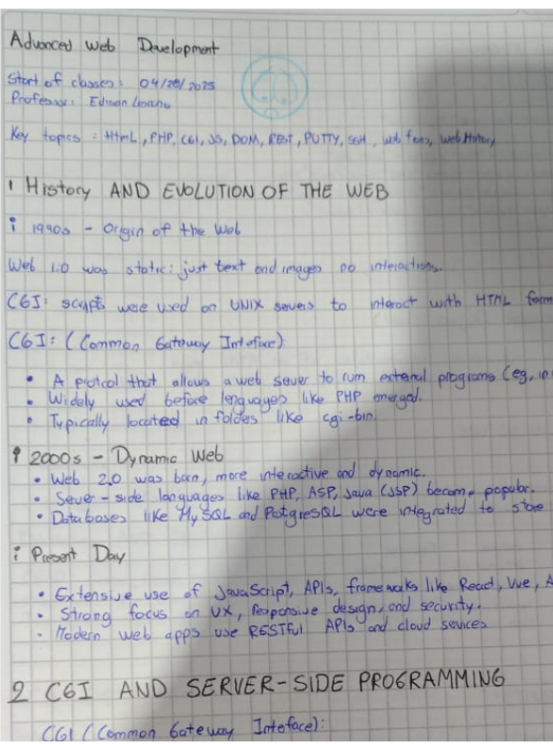 Advanced Web Development
Start of classes: 04/28/2025
Professor: Edison
Key topics: HTML, PHP, CGI, JS, DOM, REST, PUTTY, SSH, web
1 History AND EVOLUTION OF THE WEB
1990s - Origin of the Web
Web 1.0 was static: just text and images no interactions.
CGI: scripts were used on UNIX severs to interact with HTML form
CGI: (Common Gateway Inteface)
• A protcol that allows a web sever to run external programs (eg, in
• Widely used before languages like PHP emerged.
• Typically located in foldes like cgi-bin.
2000s - Dynamic Web
• Web 2.0 was born, more interactive and dynamic.
• Sever-side languages like PHP, ASP, Java (JSP) became popular.
• Databases like MySQL and PostgreSQL were integrated to store
Present Day
• Extensive use of JavaScript, APIs, frameworks like React, Vue, A
• Strong focus on UX, Responsive design, and security.
• Modern web apps use RESTful APIs and cloud sevices
2 CGI AND SERVER-SIDE PROGRAMMING
CGI (Common Gateway Inteface):